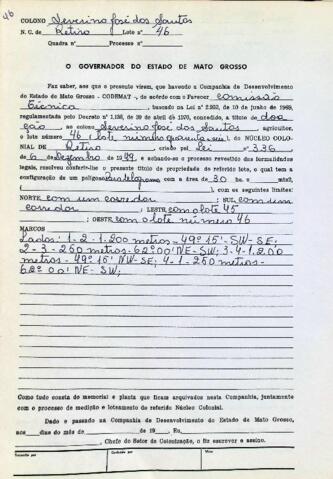 46
COLONO Severino José dos Santos
N. C. de Retiro Lote nº 46
Quadra nº Processo nº
O GOVERNADOR DO ESTADO DE MATO GROSSO
Faz saber, aos que o presente virem, que havendo a Companhia de Desenvolvimento
do Estado de Mato Grosso - CODEMAT -, de acôrdo com o Parecer comissão
técnica, baseado na Lei nº 2.992, de 10 de junho de 1969,
regulamentada pelo Decreto nº 1.138, de 29 de abril de 1970, concedido, a título de doa
ção ao colono Severino José dos Santos, agricultor,
o lote número 46 (lote número quarenta e seis), do NÚCLEO COLO-
NIAL DE Retiro, criado pel Lei nº 336
de 6 de Dezembro de 1949, e achando-se o processo revestido das formalidades
legais, resolveu conferir-lhe o presente título de propriedade do referido lote, o qual tem a
configuração de um polígono com a área de 30 ha. e mts2,
( ), com os seguintes limites:
NORTE com um corredor ; SUL com um
corredor ; LESTE com o lote 45
; OESTE com o lote número 46
MARCOS
Lados: 1-2-1.200 metros - 49º15' - SW-SE;
2-3-250 metros - 62º00' NE-SW; 3-4-1.200
metros - 49º15' NW-SE; 4-1-250 metros -
62º00' NE-SW;
Como tudo consta do memorial e planta que ficam arquivados nesta Companhia, juntamente
com o processo de medição e loteamento do referido Núcleo Colonial.
Dado e passado na Companhia de Desenvolvimento do Estado de Mato Grosso,
aos dias do mês de de 19 . Eu,
, Chefe do Setor de Colonização, o fiz escrever e assino.
Visto